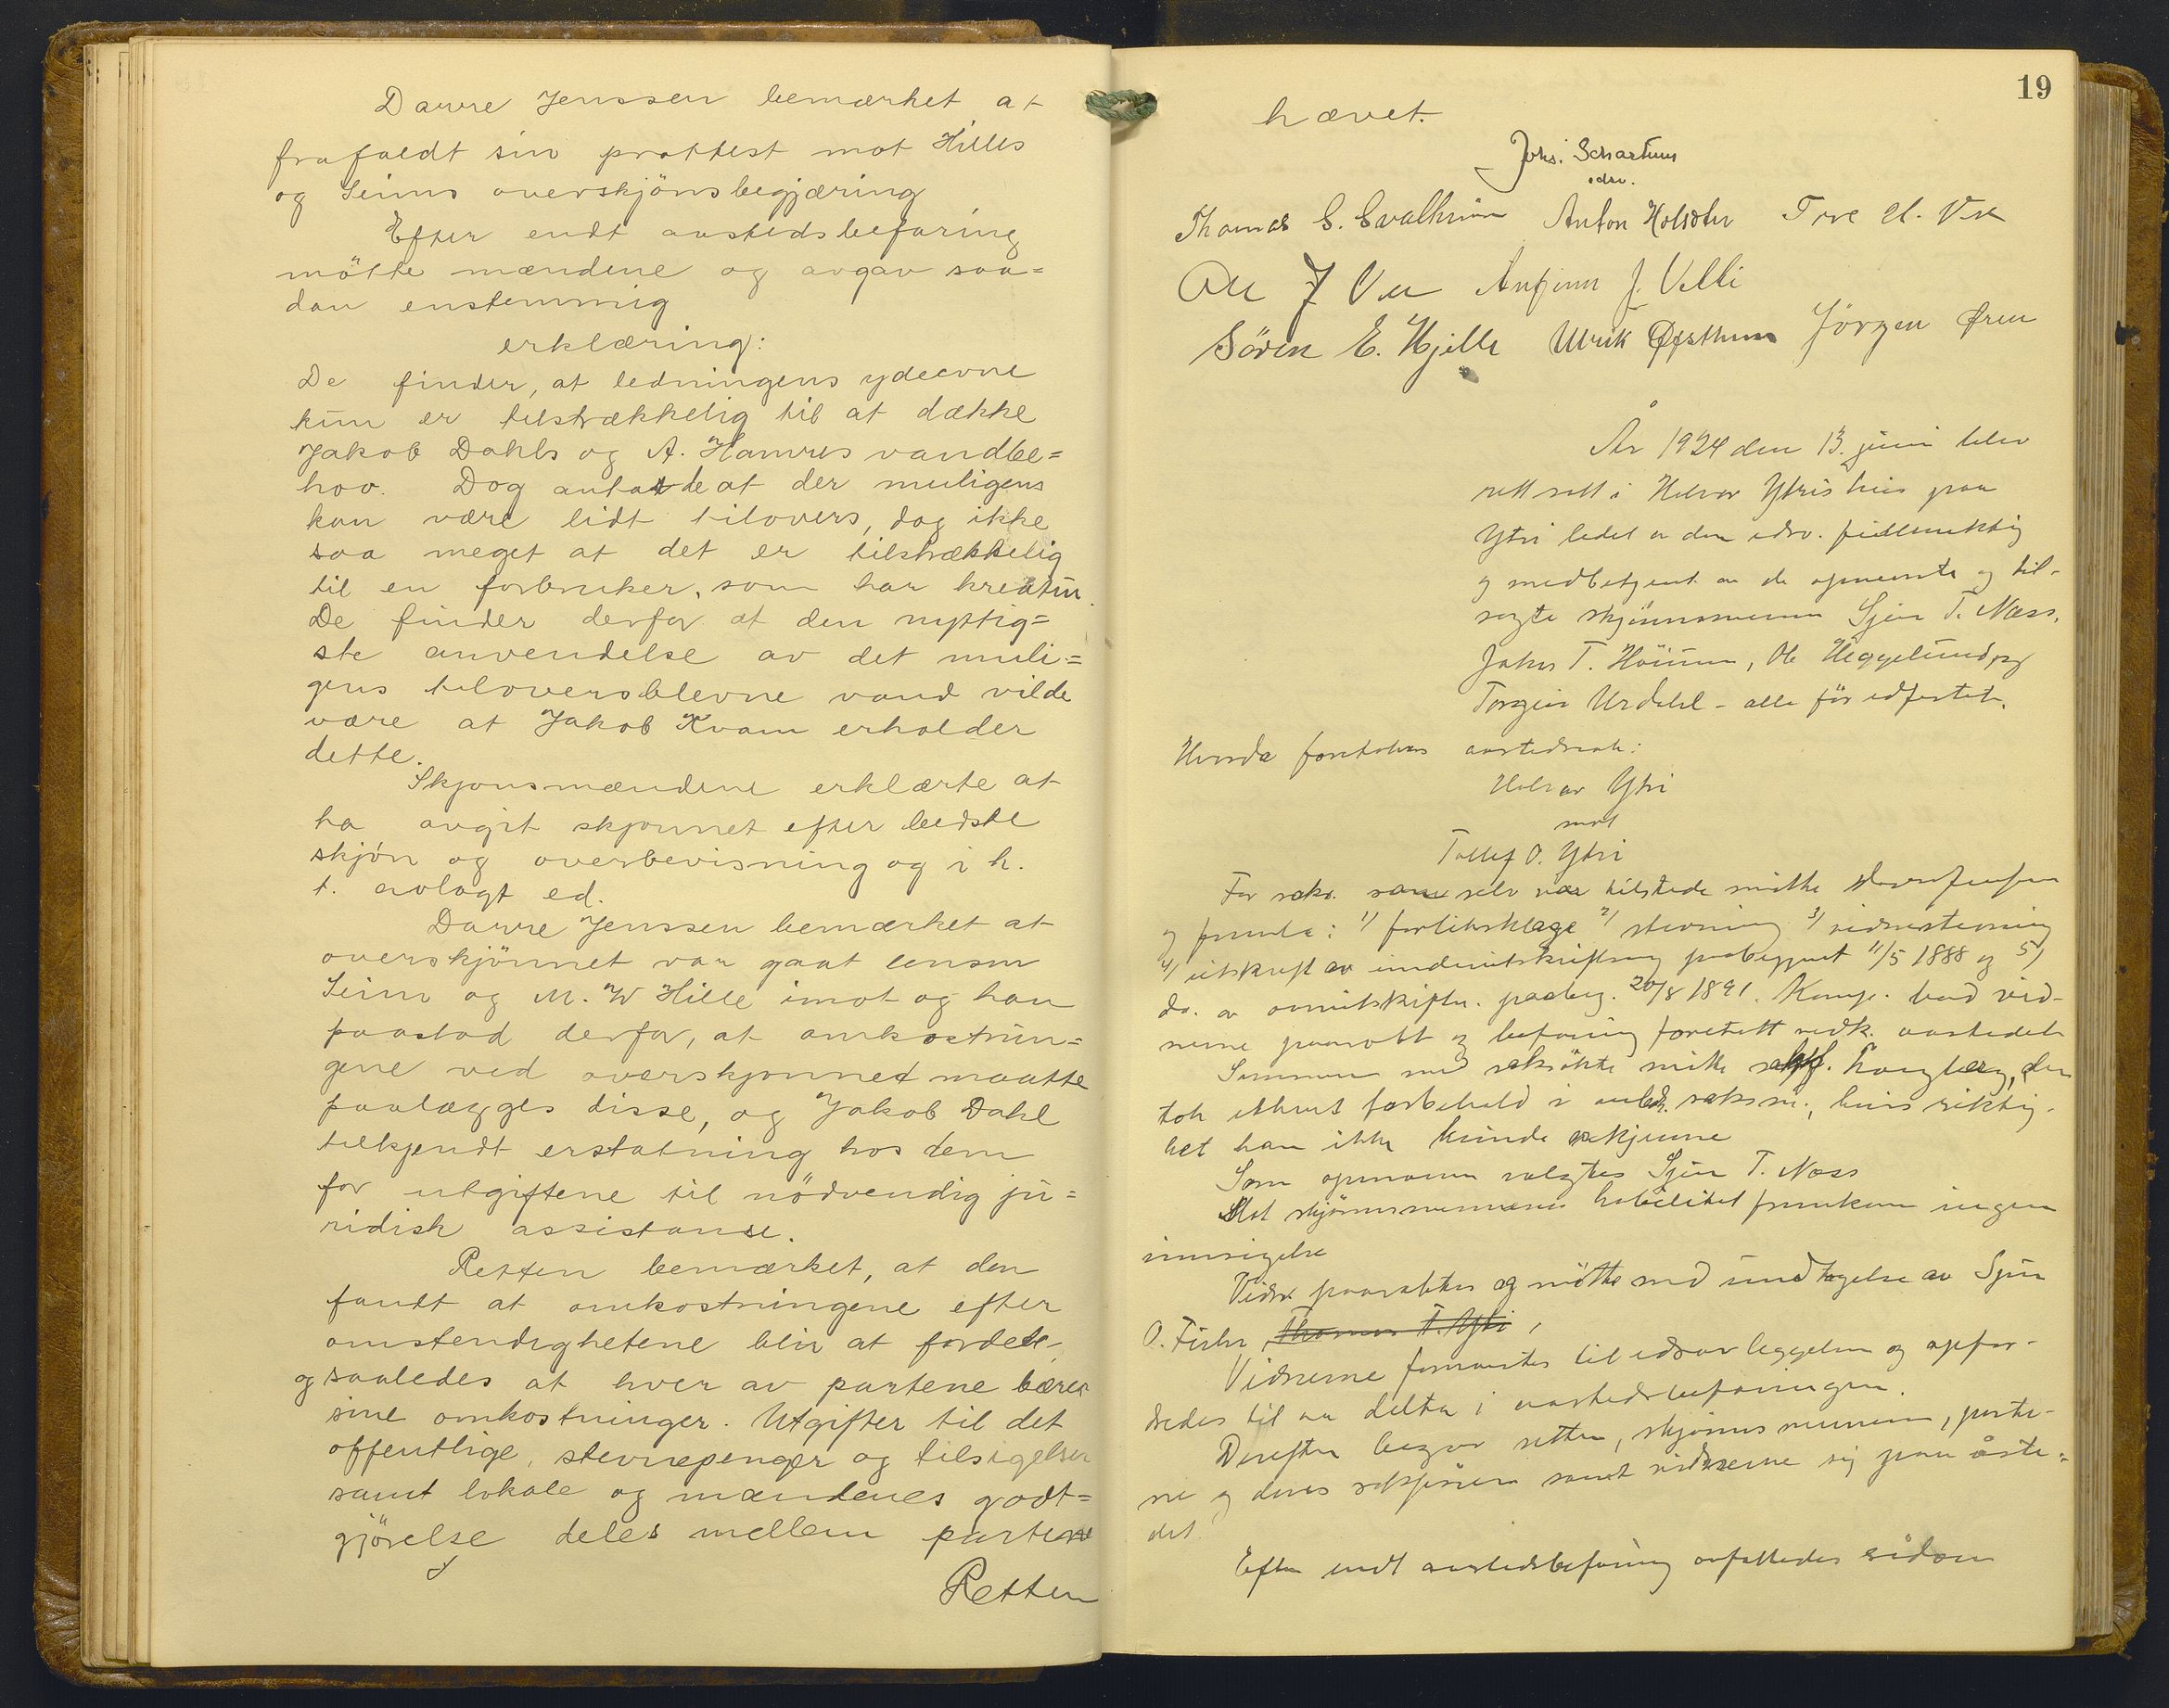 Darre Jenssen bemærket at
frafaldt sin prottest mot Hilles
og Seims overskjönsbegjæring
Efter endt aastedsbefaring
mötte mændene og avgav saa=
dan enstemmig
erklæring:
De finder, at ledningens ydeevne
kun er tilstrækkelig til at dække
Jakob Dahls og A. Hamres vandbe=
hov. Dog antar de at der muligens
kan være lidt tilovers, dog ikke
saa meget at det er tilstrækkelig
til en forbruker, som har kreatur.
De finder derfor at den nyttig=
ste anvendelse av det muli=
gens tiloversblevne vand vilde
være at Jakob Kvam erholder
dette.
Skjonsmændene erklærte at
ha avgit skjønnet efter bedste
skjön og overbevisning og i h.
t. avlagt ed.
Darre Jenssen bemærket at
overskjönnet var gaat lensm
Seim og M. W Hille imot og han
paastod derfor, at omkostnin=
gene ved overskjonnet maatte
paalægges disse, og Jakob Dahl
tilkjendt erstatning hos dem
for utgiftene til nödvendig ju=
ridisk assistanse.
Retten bemærket, at den
fandt at omkostningene efter
omstendighetene blir at fordele
og saaledes at hver av partene bærer
sine omkostninger. Utgifter til det
offentlige, stevnepenger og tilsigelser
samt lokale og mændenes godt=
gjörelse deles mellem partene
Retten
19
hævet.
Johs. Schartum
edsv.
Thomas E. Anton Tore
Ole J Anfinn J. Velli
Sören E. Hjelle Ulrik Jörgen Øren
År 1924 den 13. juni blev
rett satt i Halvor Ytris hus paa
Ytri ledet av den edsv. fuldmektig
og medbetjent av de opnevnte og til-
sagte skjönnsmenn Sjur T. Næss,
T. Ole Heggelund og
Torgeir Urdahl – alle för edfestet.
Hvorda foretokes aastedssak:
Halvor Ytri
mot
Tollef O. Ytri
For saks. som selv var tilstede mötte
og fremla: 1/ forliksklage 2/ stevning 3/ vidnestevning
4/ utskrift av paabegynt 11/5 1888 og 5/
do. av paabeg. 20/8 1891. Komp. bad vid-
nerne paaropt og befaring foretatt vedk. aastedet
Sammen med saksökte mötte den
tok ethvert forbehold i riktig-
het han ikke kunde erkjenne
Som opmann valgtes Sjur T. Næss
Mot skjönnsmennenes habilitet fremkom ingen
innsigelse
Vidn. paaroptes og mötte med undtagelse av Sjur
O. Thomas T. Ytri
Vidnerne formantes til edsavleggelsen og opfor-
dredes til aa delta i aastedsbefaringen.
Derefter begav retten, skjönnsmennene, parte-
ne og deres samt vidnerne sig paa åste-
det.
Efter endt aastedsbefaring avfattedes sådan